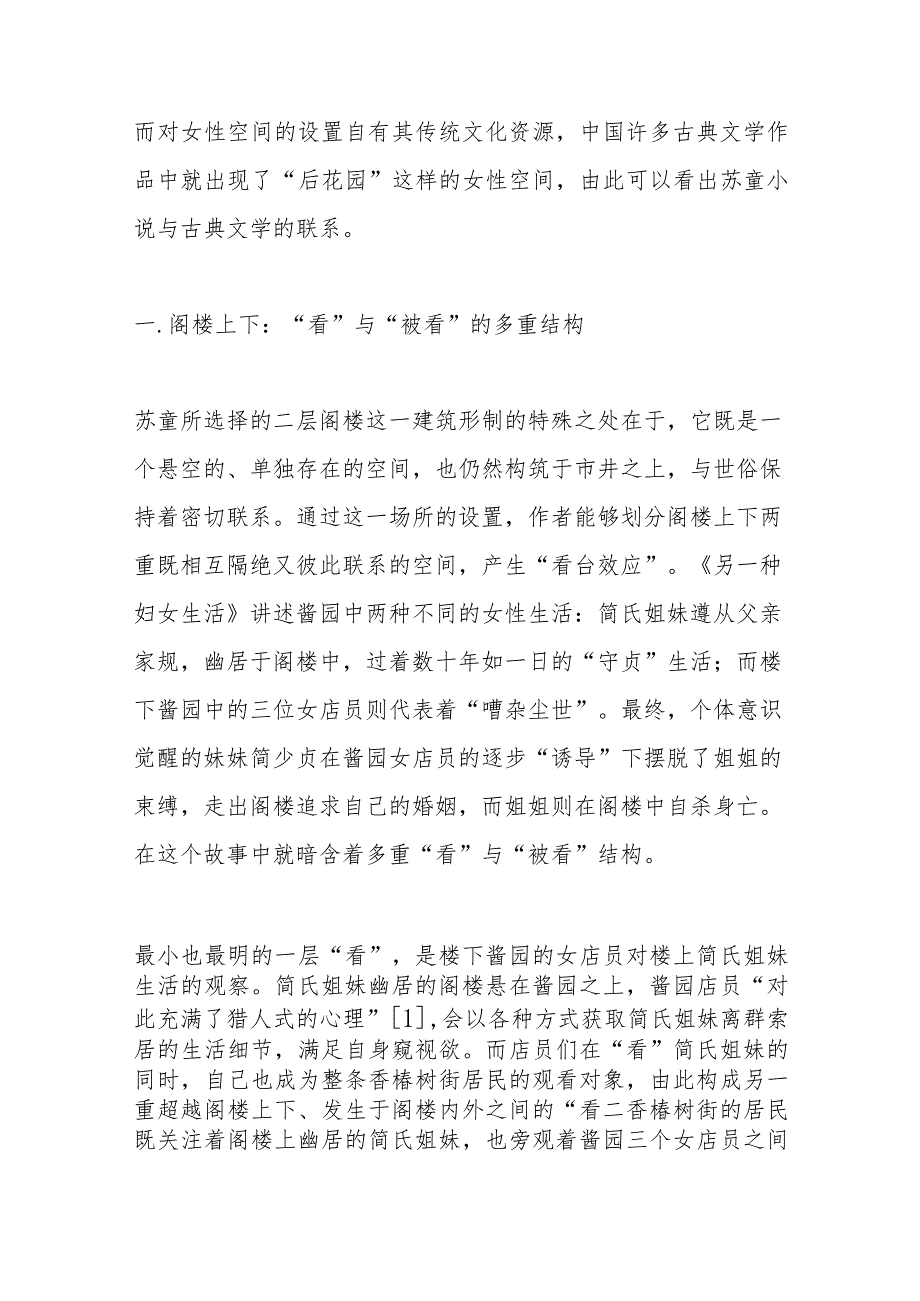 而对女性空间的设置自有其传统文化资源，中国许多古典文学作
品中就出现了“后花园”这样的女性空间，由此可以看出苏童小
说与古典文学的联系。
一.阁楼上下：“看”与“被看”的多重结构
苏童所选择的二层阁楼这一建筑形制的特殊之处在于，它既是一
个悬空的、单独存在的空间，也仍然构筑于市井之上，与世俗保
持着密切联系。通过这一场所的设置，作者能够划分阁楼上下两
重既相互隔绝又彼此联系的空间，产生“看台效应”。《另一种
妇女生活》讲述酱园中两种不同的女性生活：简氏姐妹遵从父亲
家规，幽居于阁楼中，过着数十年如一日的“守贞”生活；而楼
下酱园中的三位女店员则代表着“嘈杂尘世”。最终，个体意识
觉醒的妹妹简少贞在酱园女店员的逐步“诱导”下摆脱了姐姐的
束缚，走出阁楼追求自己的婚姻，而姐姐则在阁楼中自杀身亡。
在这个故事中就暗含着多重“看”与“被看”结构。
最小也最明的一层“看”，是楼下酱园的女店员对楼上简氏姐妹
生活的观察。简氏姐妹幽居的阁楼悬在酱园之上，酱园店员“对
此充满了猎人式的心理”[1],会以各种方式获取简氏姐妹离群索
居的生活细节，满足自身窥视欲。而店员们在“看”简氏姐妹的
同时，自己也成为整条香椿树街居民的观看对象，由此构成另一
重超越阁楼上下、发生于阁楼内外之间的“看二香椿树街的居民
既关注着阁楼上幽居的简氏姐妹，也旁观着酱园三个女店员之间